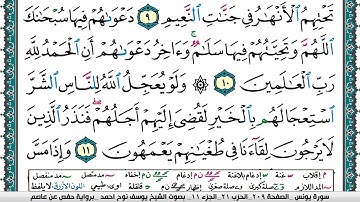 تَحْتِهِمُ ٱلْأَنْهَٰرُ فِى جَنَّٰتِ ٱلنَّعِيمِ ٩ دَعْوَىٰهُمْ فِيهَا سُبْحَٰنَكَ
ٱللَّهُمَّ وَتَحِيَّتُهُمْ فِيهَا سَلَٰمٌ ۚ وَءَاخِرُ دَعْوَىٰهُمْ أَنِ ٱلْحَمْدُ لِلَّهِ
رَبِّ ٱلْعَٰلَمِينَ ١٠ ۞ وَلَوْ يُعَجِّلُ ٱللَّهُ لِلنَّاسِ ٱلشَّرَّ
ٱسْتِعْجَالَهُم بِٱلْخَيْرِ لَقُضِىَ إِلَيْهِمْ أَجَلُهُمْ ۖ فَنَذَرُ ٱلَّذِينَ
لَا يَرْجُونَ لِقَآءَنَا فِى طُغْيَٰنِهِمْ يَعْمَهُونَ ١١ وَإِذَا مَسَّ
سورة يونس الصفحة ٢٠٩ الحزب ٢١ الجزء ١١ بصوت الشيخ يوسف نوح احمد . برواية حفص عن عاصم